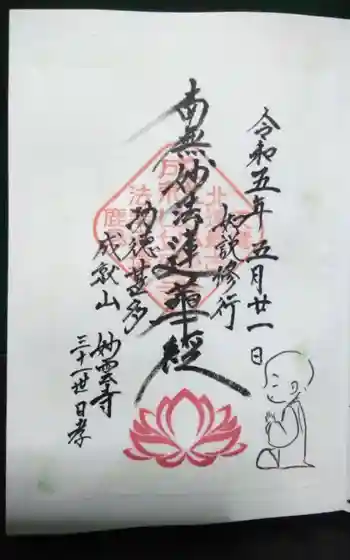 令和五年五月廿一日
如説修行
南無妙法蓮華経
功徳甚多
成就山
妙雲寺
三十一世日孝